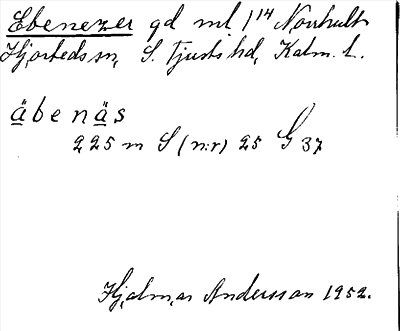 Ebenezer gd ml 1¹⁴ Norrhult
Hjorteds sn, S. Tjusts hd, Kalm. l.
äbenäs
225 m S (n:r) 25 G 37
Hjalmar Andersson 1952.